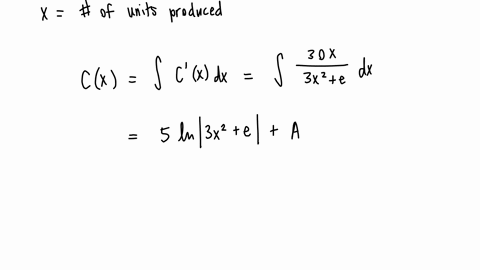 x = # of units produced
C(x) = ∫ C'(x) dx = ∫ 30x / (3x² + e) dx
= 5 ln|3x² + e| + A